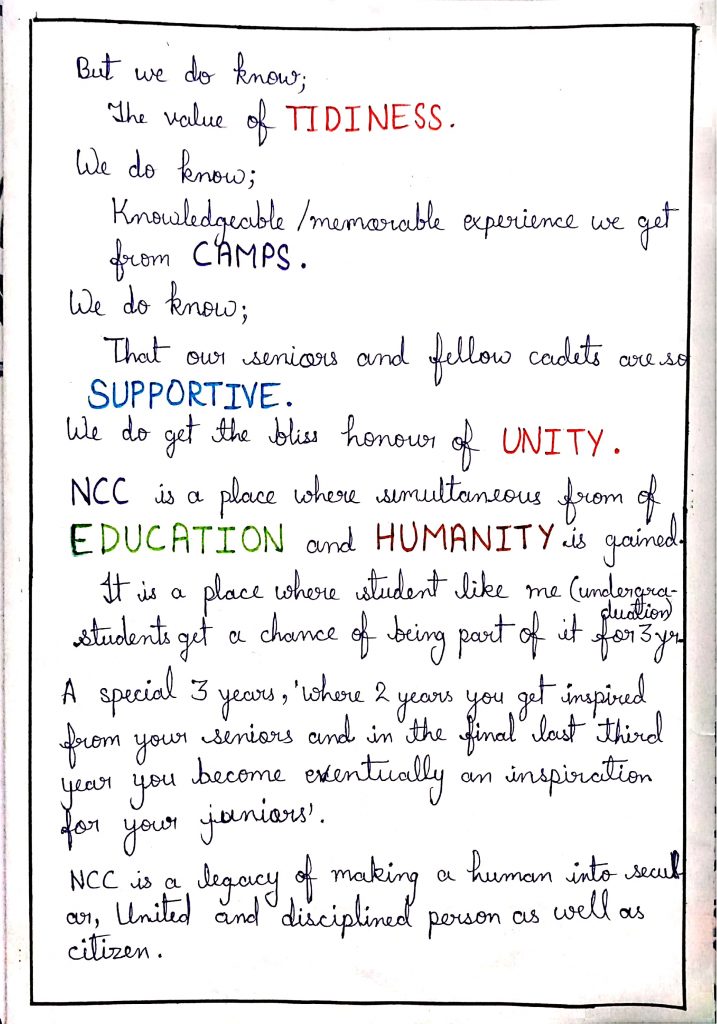 But we do know;
The value of TIDINESS.
We do know;
Knowledgeable/memorable experience we get
from CAMPS.
We do know;
That our seniors and fellow cadets are so
SUPPORTIVE.
We do get the bliss honour of UNITY.
NCC is a place where simultaneous from of
EDUCATION and HUMANITY is gained.
It is a place where student like me (undergra-
duation)
students get a chance of being part of it for 3 yr.
A special 3 years, 'where 2 years you get inspired
from your seniors and in the final last third
year you become eventually an inspiration
for your juniors'.
NCC is a legacy of making a human into secul
ar, United and disciplined person as well as
citizen.